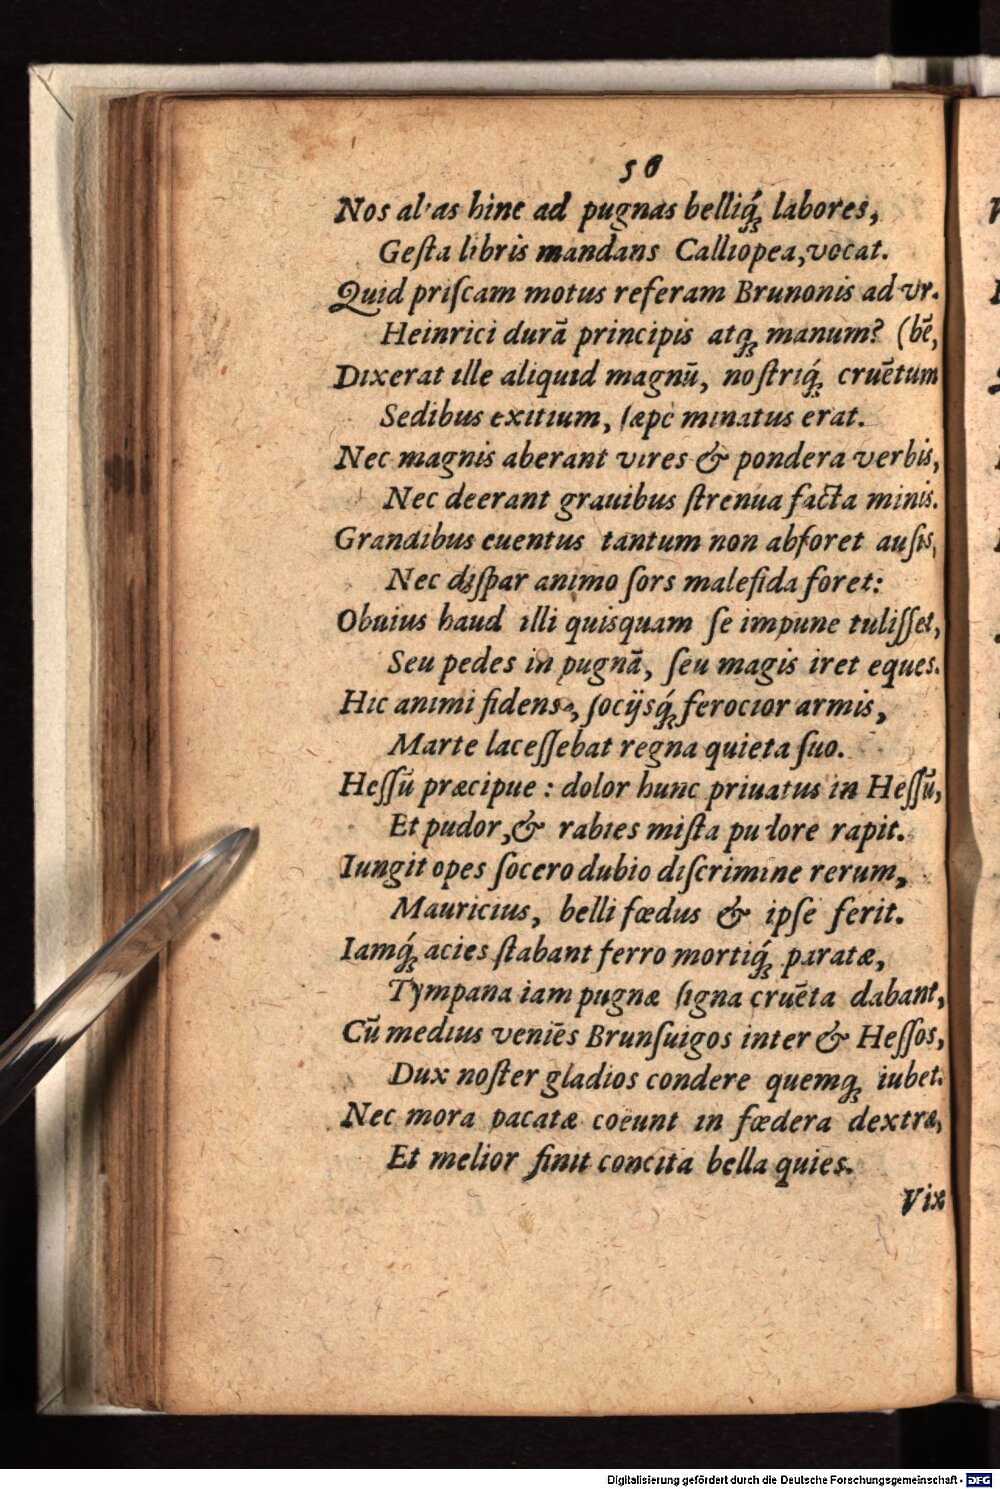 50
Nos al as hinc ad pugnas belliq́; labores,
Geſta libris mandans Calliopea, vocat.
Quid priſcam motus referam Brunonis ad vr.
Heinrici durā principis atq; manum? (bē,
Dixerat ille aliquid magnū, noſtriq́; cruētum
Sedibus exitium, ſæpe minatus erat.
Nec magnis aberant vires & pondera verbis,
Nec deerant grauibus ſtrenua facta minis.
Grandibus euentus tantum non abforet auſis,
Nec diſpar animo ſors malefida foret:
Obuius haud illi quisquam ſe impune tuliſſet,
Seu pedes in pugnā, ſeu magis iret eques.
Hic animi fidens, ſocijsq́; ferocior armis,
Marte laceſſebat regna quieta ſuo.
Heſſū præcipue : dolor hunc priuatus in Heſſū,
Et pudor, & rabies miſta pudore rapit.
Iungit opes ſocero dubio diſcrimine rerum,
Mauricius, belli fœdus & ipſe ferit.
Iamq́; acies ſtabant ferro mortiq́; paratæ,
Tympana iam pugnæ ſigna cruēta dabant,
Cū medius veniēs Brunſuigos inter & Heſſos,
Dux noſter gladios condere quemq; iubet.
Nec mora pacatæ coëunt in fœdera dextræ,
Et melior finit concita bella quies.
Vix
Digitalisierung gefördert durch die Deutsche Forschungsgemeinschaft - DFG